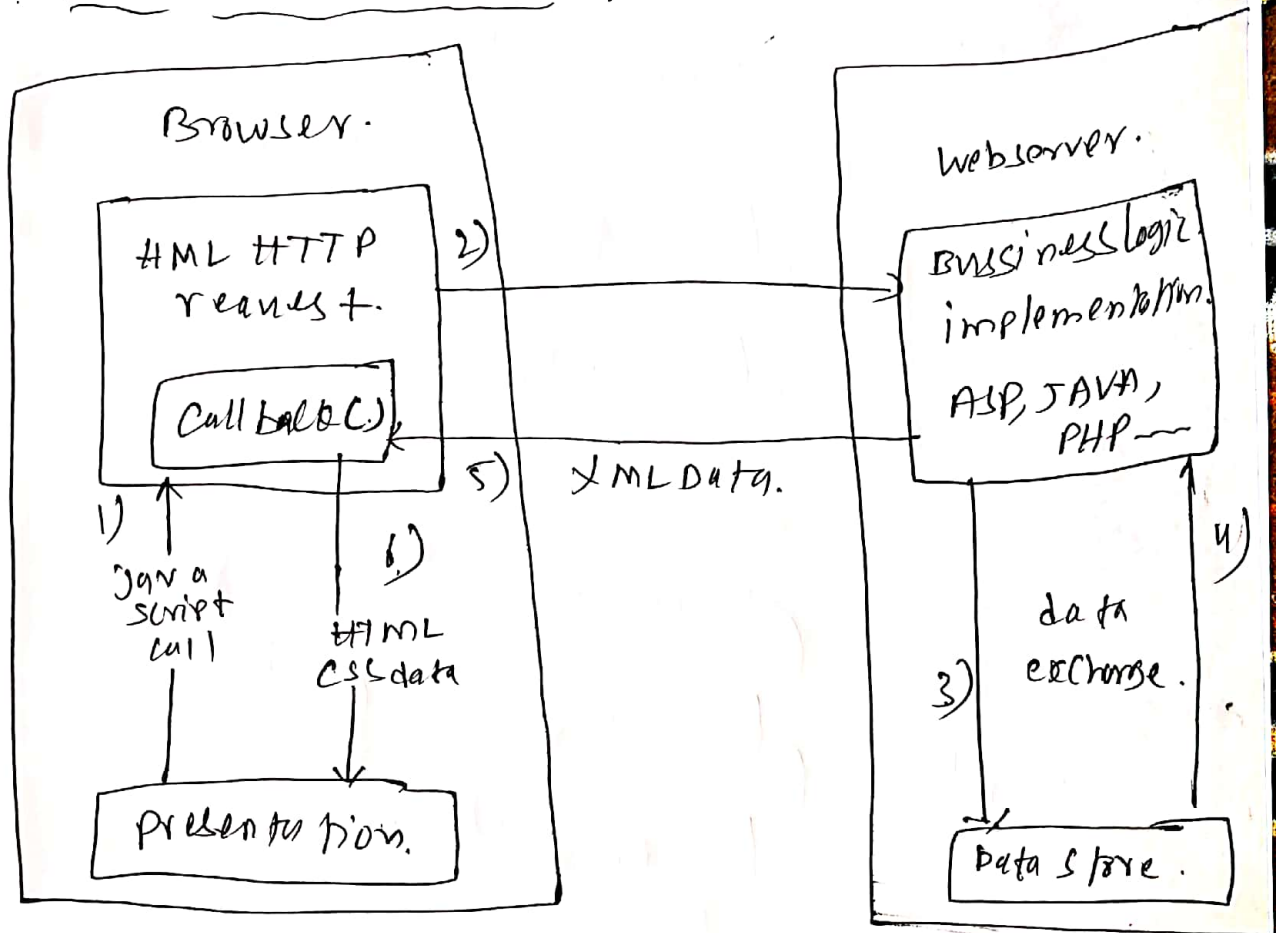 Browser.
HML HTTP
request.
Callback()
1)
Java
script
call
6)
HTML
CSS data
presentation.
2)
5) XML Data.
Webserver.
Bussiness logic
implementation.
ASP, JAVA,
PHP
3)
data
exchange.
4)
Data Store.